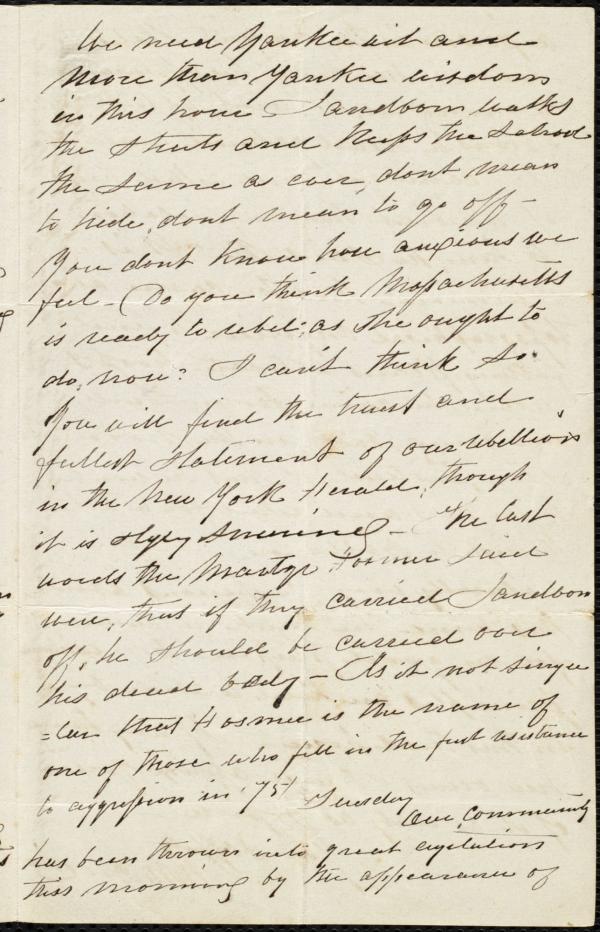 We need Yankee wit and
more than Yankee wisdom
in this hour Sandborn walks
the streets and keeps the school
the same as ever, dont mean
to hide, dont mean to go off -
You dont know how anxious we
feel - Do you think Massachusetts
is ready to rebel; as she ought to
do, now? I can't think so.
You will find the truest and
fullest statement of our rebellion
in the New York Herald, though
it is slyly sneering - The last
words the Martyr Hosmer said
were, that if they carried Sandborn
off, he should be carried over
his dead body - Is it not singu
=lar that Hosmer is the name of
one of those who fell in the first resistance
to aggression in '75!
Tuesday
Our community
has been thrown into great agitation
this morning by the appearance of